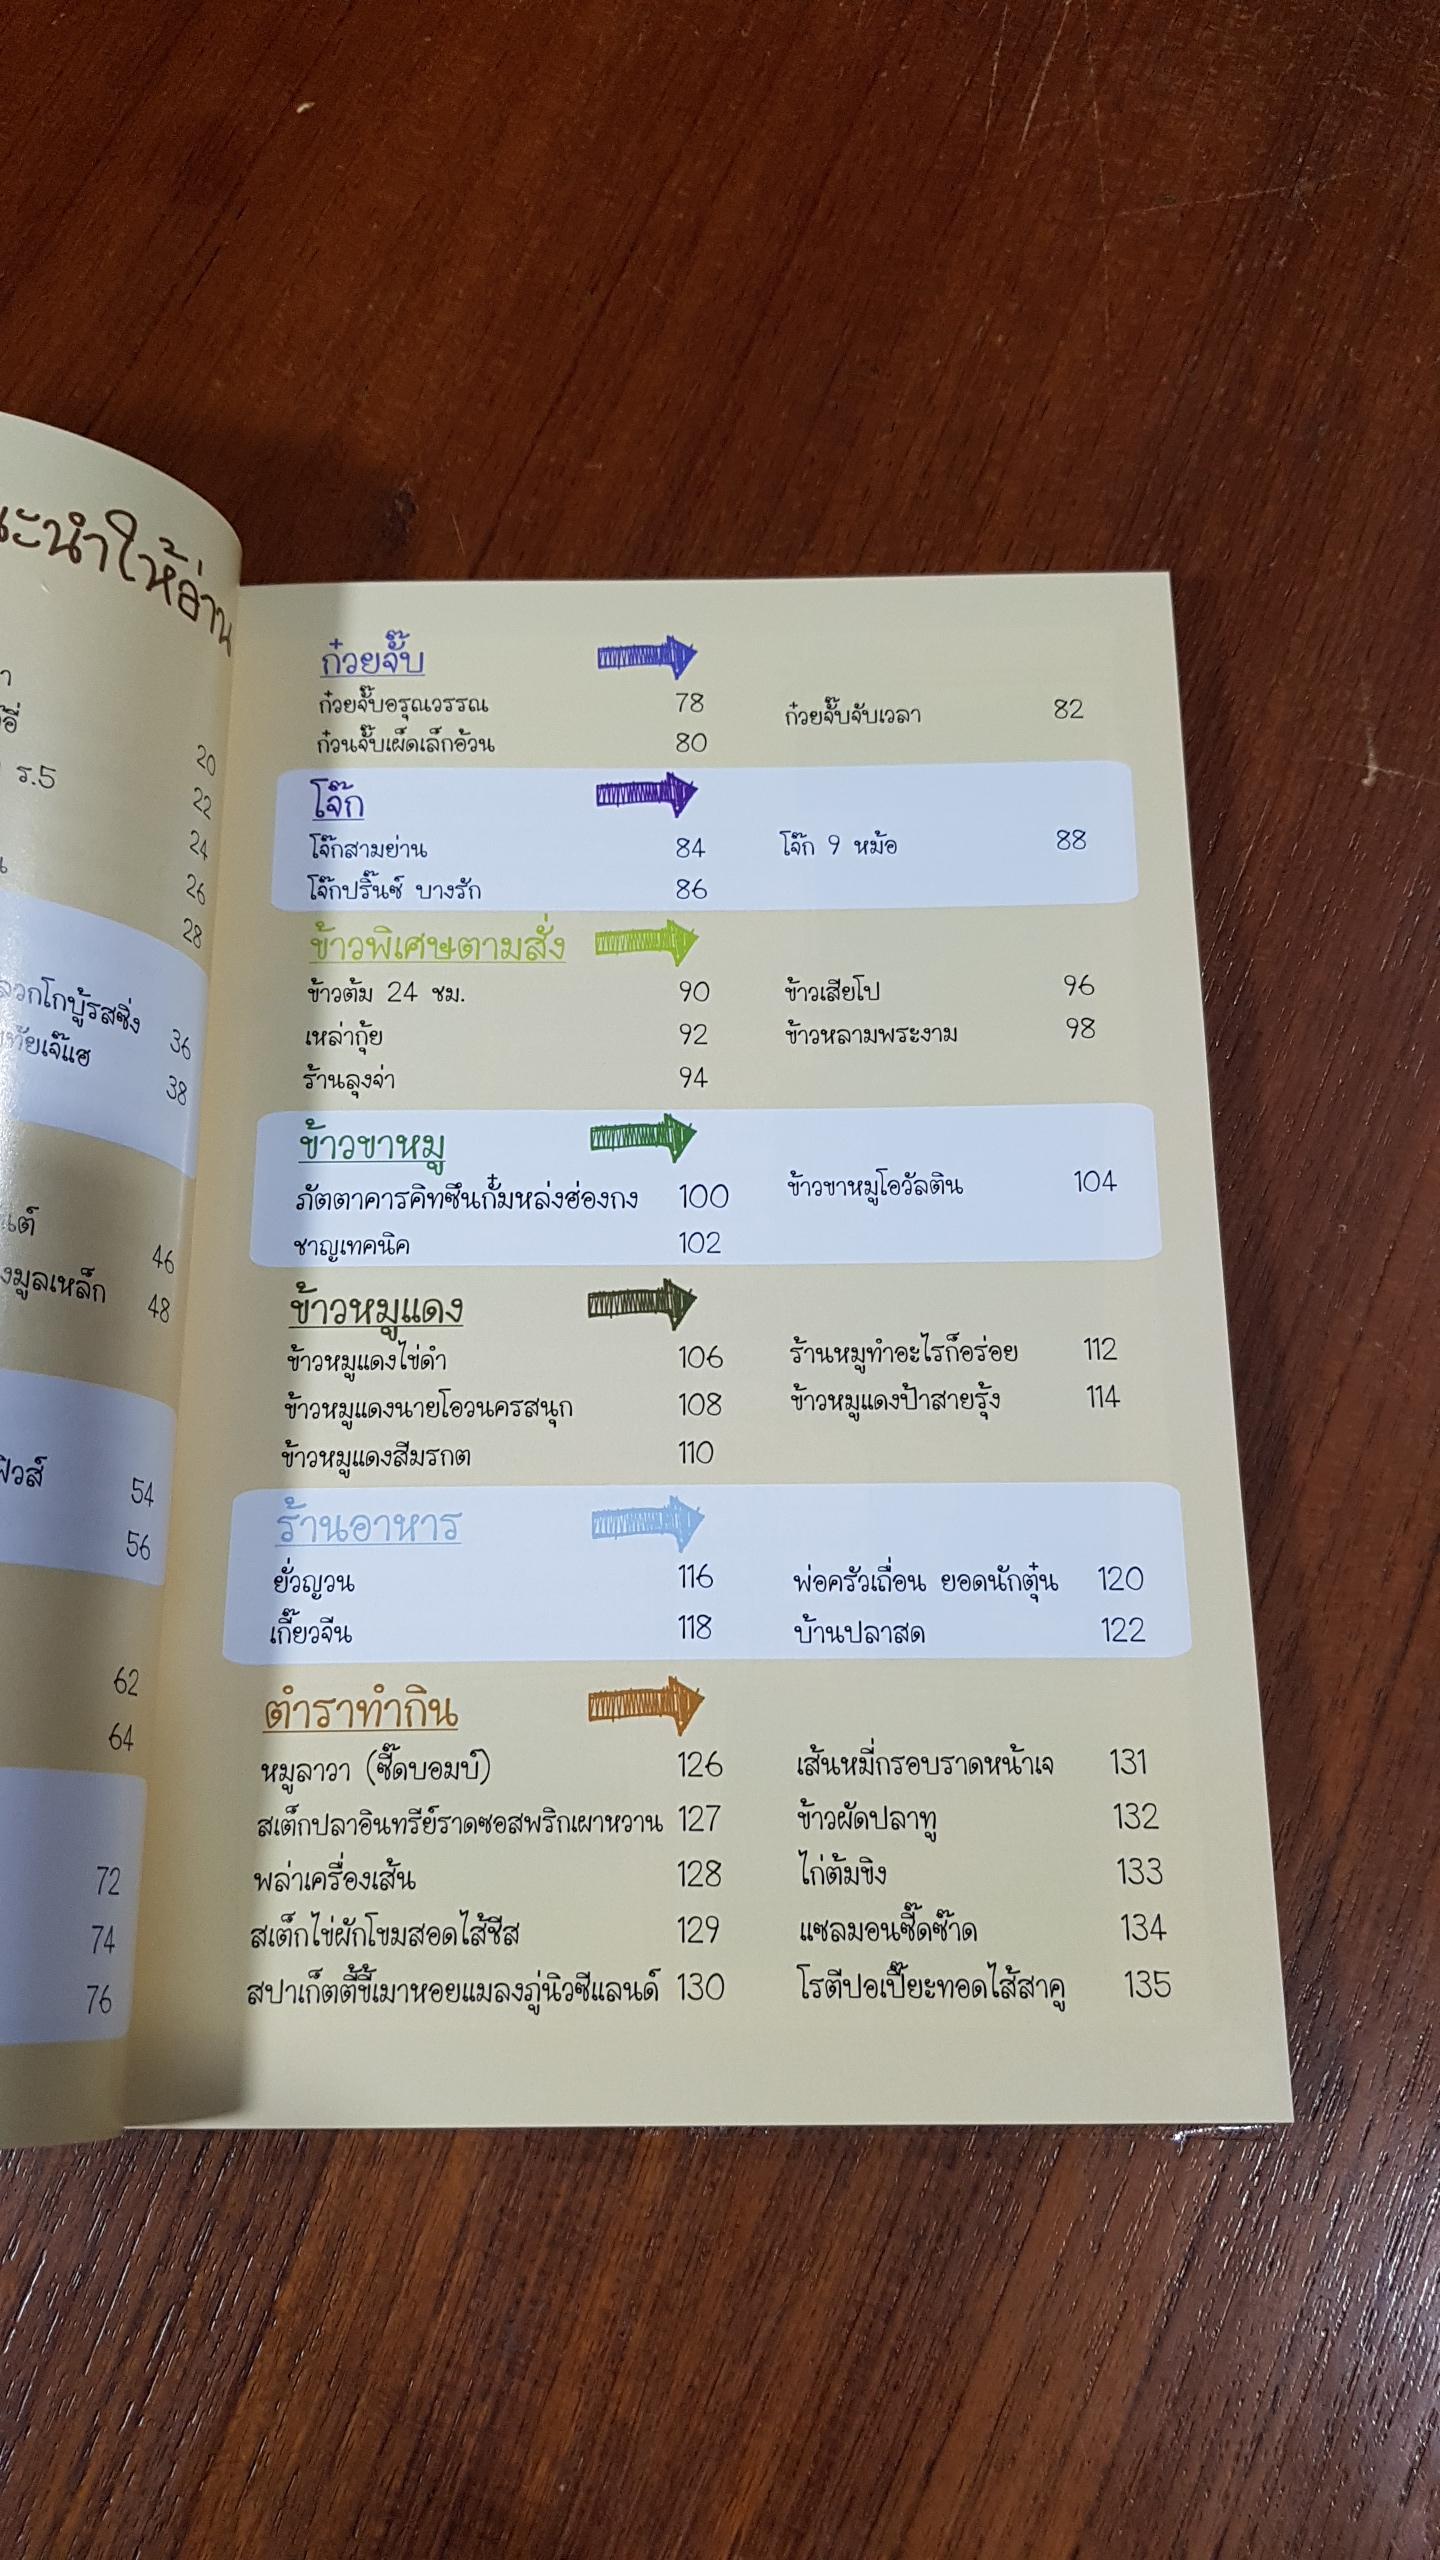 ะนำให้อ่าน
ร.5
20
22
24
26
28
ลวกโกบู๊รสซิ่ง 36
38
46
งมูลเหล็ก 48
54
56
62
64
72
74
76
ก๋วยจั๊บ
ก๋วยจั๊บอรุณวรรณ 78 ก๋วยจั๊บจับเวลา 82
ก๋วนจั๊บเผ็ดเล็กอ้วน 80
โจ๊ก
โจ๊กสามย่าน 84 โจ๊ก 9 หม้อ 88
โจ๊กปริ๊นซ์ บางรัก 86
ข้าวพิเศษตามสั่ง
ข้าวต้ม 24 ชม. 90 ข้าวเสียโป 96
เหล่ากุ้ย 92 ข้าวหลามพระงาม 98
ร้านลุงจ่า 94
ข้าวขาหมู
ภัตตาคารคิทซึนกั๋มหล่งฮ่องกง 100 ข้าวขาหมูโอวัลติน 104
ชาญเทคนิค 102
ข้าวหมูแดง
ข้าวหมูแดงไข่ดำ 106 ร้านหมูทำอะไรก็อร่อย 112
ข้าวหมูแดงนายโอวนครสนุก 108 ข้าวหมูแดงป้าสายรุ้ง 114
ข้าวหมูแดงสีมรกต 110
ร้านอาหาร
ยั่วญวน 116 พ่อครัวเถื่อน ยอดนักตุ๋น 120
เกี๊ยวจีน 118 บ้านปลาสด 122
ตำราทำกิน
หมูลาวา (ซี๊ดบอมบ์) 126 เส้นหมี่กรอบราดหน้าเจ 131
สเต็กปลาอินทรีย์ราดซอสพริกเผาหวาน 127 ข้าวผัดปลาทู 132
พล่าเครื่องเส้น 128 ไก่ต้มขิง 133
สเต็กไข่ผักโขมสอดไส้ชีส 129 แซลมอนซี๊ดซ๊าด 134
สปาเก็ตตี้ขี้เมาหอยแมลงภู่นิวซีแลนด์ 130 โรตีปอเปี๊ยะทอดไส้สาคู 135